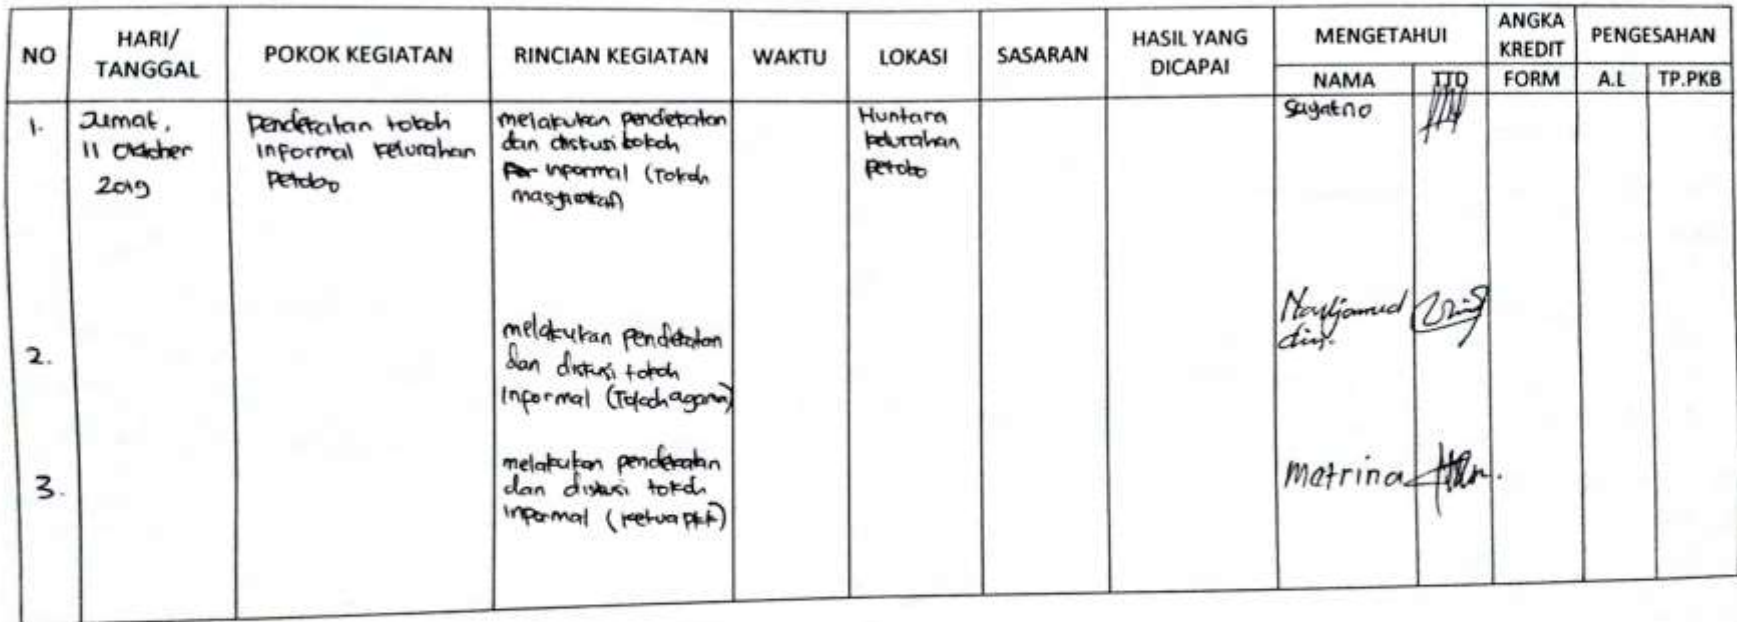 NO HARI/ TANGGAL POKOK KEGIATAN RINCIAN KEGIATAN WAKTU LOKASI SASARAN HASIL YANG DICAPAI MENGETAHUI ANGKA KREDIT PENGESAHAN
NAMA TTD FORM A.L TP.PKB
1.
Jumat,
11 Oktober
2019
Pendekatan tokoh
informal kelurahan
Petobo
melakukan pendekatan
dan diskusi tokoh
informal (Tokoh
masyarakat)
Huntara
kelurahan
Petobo
Suyatno
2.
melakukan pendekatan
dan diskusi tokoh
Informal (Tokoh agama)
3.
melakukan pendekatan
dan diskusi tokoh
informal (ketua pkk)
Matrina